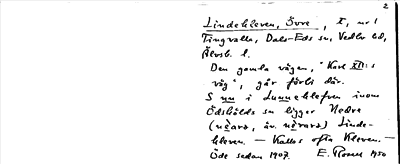 2
Lindekleven, Övre, I, nr 1
Tingvalla, Dals-Eds sn, Vedbo hd,
Älvsb. l.
Den gamla vägen, "Karl XII:s
väg", går förbi där.
S nn i Lunneklefven inom
Ödsbölds sn ligger Nedre
Linde-
kleven. — Kallas ofta Kleven. —
Öde sedan 1907. E. 1930